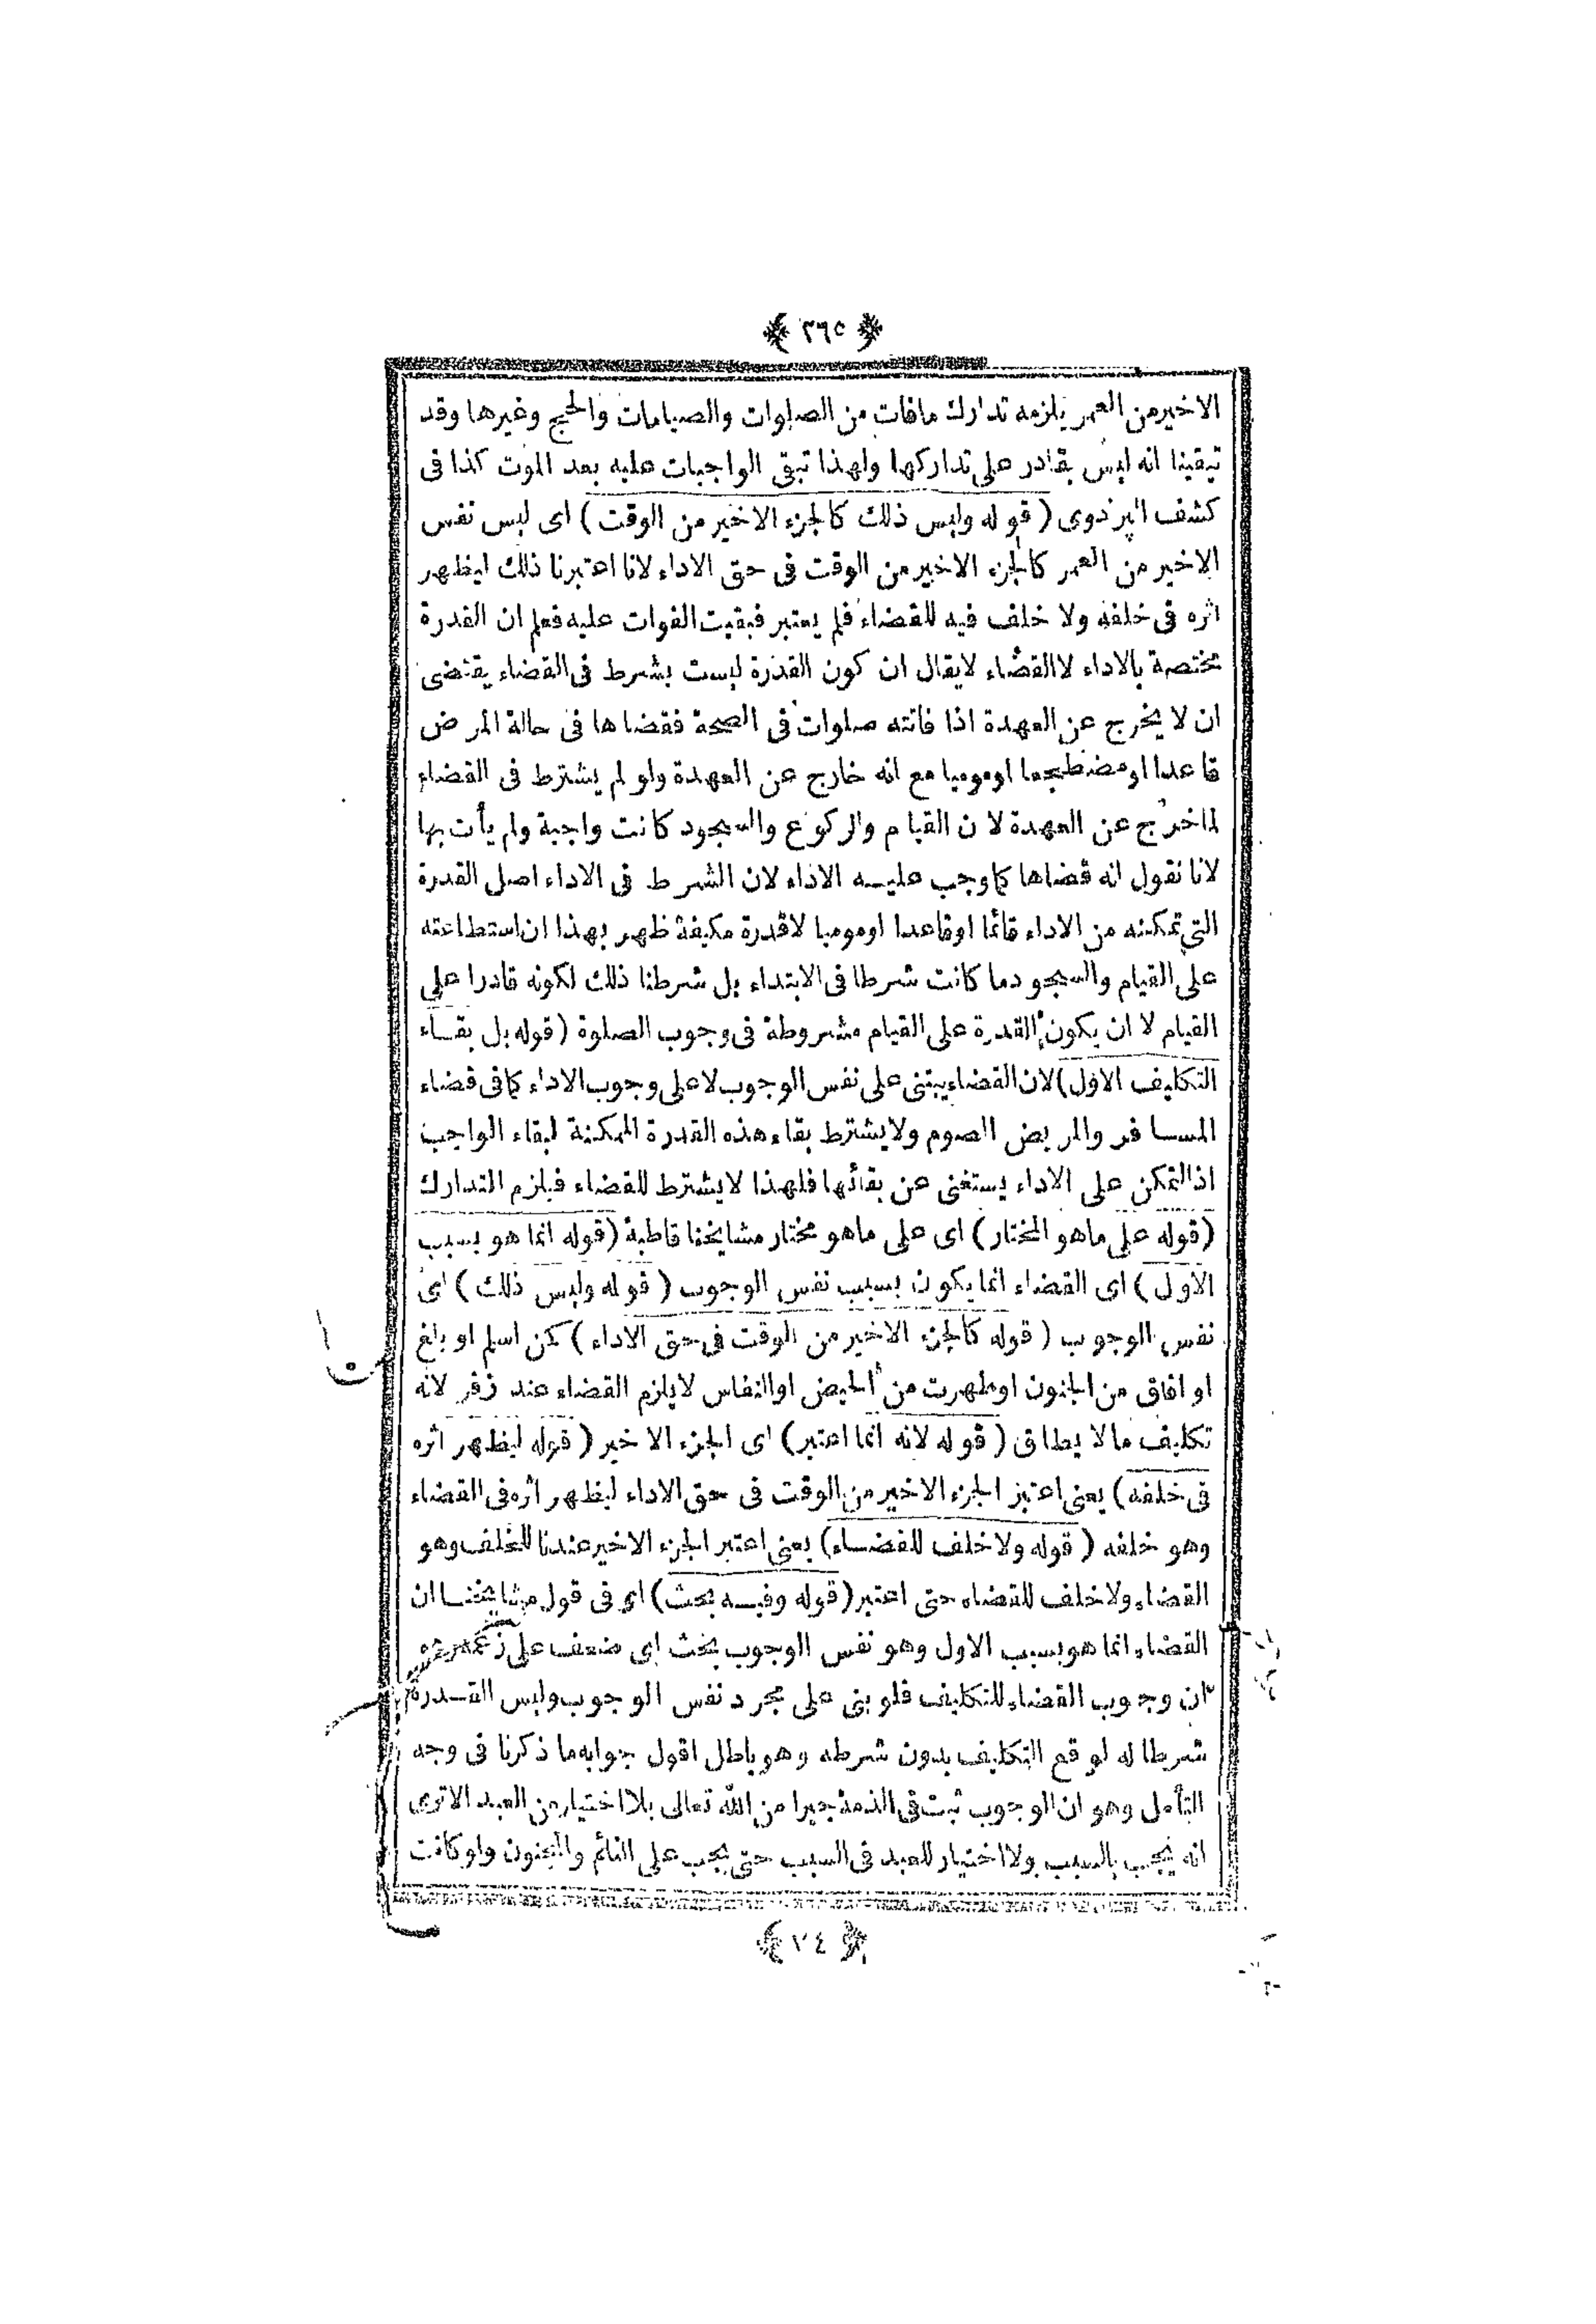 ﴿ ٣٦٥ ﴾
الاخير من العمر يلزمه تدارك مافات من الصلوات والصيامات والحج وغيرها وقد
تيقينا انه ليس بقادر على تداركها ولهذا تبقى الواجبات عليه بعد الموت كذا فى
كشف البزدوى ( قوله وليس ذلك كالجزء الاخير من الوقت ) اى ليس نفس
الاخير من العمر كالجزء الاخير من الوقت فى حق الاداء لانا اعتبرنا ذلك ليظهر
اثره فى خلفه ولا خلف فيه للقضاء فلم يعتبر فبقيت الفوات عليه فعلم ان القدرة
مختصة بالاداء لاالقضاء لايقال ان كون القدرة ليست بشرط فى القضاء يقتضى
ان لا يخرج عن العهدة اذا فاتته صلوات فى الصحة فقضاها فى حالة المرض
قاعدا اومضطجعا اوموميا مع انه خارج عن العهدة ولو لم يشترط فى القضاء
لماخرج عن العهدة لان القيام والركوع والسجود كانت واجبة ولم يأت بها
لانا نقول انه قضاها كما وجب عليه الاداء لان الشرط فى الاداء اصلى القدرة
التى تمكنه من الاداء قائما اوقاعدا اوموميا لاقدرة مكيفة ظهر بهذا ان استطاعته
على القيام والسجود ما كانت شرطا فى الابتداء بل شرطنا ذلك لكونه قادرا على
القيام لا ان يكون القدرة على القيام مشروطة فى وجوب الصلوة ( قوله بل بقاء
التكليف الاول ) لان القضاء يبتنى على نفس الوجوب لاعلى وجوب الاداء كما فى قضاء
المسافر والمريض الصوم ولايشترط بقاء هذه القدرة الممكنة لبقاء الواجب
اذ التمكن على الاداء يستغنى عن بقائها فلهذا لايشترط للقضاء فيلزم التدارك
( قوله على ماهو المختار ) اى على ماهو مختار مشايخنا قاطبة ( قوله انما هو بسبب
الاول ) اى القضاء انما يكون بسبب نفس الوجوب ( قوله وليس ذلك ) اى
نفس الوجوب ( قوله كالجزء الاخير من الوقت فى حق الاداء ) كمن اسلم او بلغ
او افاق من الجنون اوطهرت من الحيض اوالنفاس لايلزم القضاء عند زفر لانه
تكليف مالا يطاق ( قوله لانه انما اعتبر ) اى الجزء الاخير ( قوله ليظهر اثره
فى خلفه ) يعنى اعتبر الجزء الاخير من الوقت فى حق الاداء ليظهر اثره فى القضاء
وهو خلفه ( قوله ولاخلف للقضاء ) يعنى اعتبر الجزء الاخير عندنا للخلف وهو
القضاء ولاخلف للقضاء حتى اعتبر ( قوله وفيه بحث ) اى فى قول مشايخنا ان
القضاء انما هو بسبب الاول وهو نفس الوجوب بحث اى ضعف على
ان وجوب القضاء للتكليف فلو بنى على مجرد نفس الوجوب وليس القدرة
شرطا له لوقع التكليف بدون شرطه وهو باطل اقول جوابه ما ذكرنا فى وجه
التأمل وهو ان الوجوب ثبت فى الذمة جبرا من الله تعالى بلا اختيار من العبد الاترى
انه يجب بالسبب ولا اختيار للعبد فى السبب حتى يجب على النائم والمجنون ولو كانت
﴿ ٢٤ ﴾